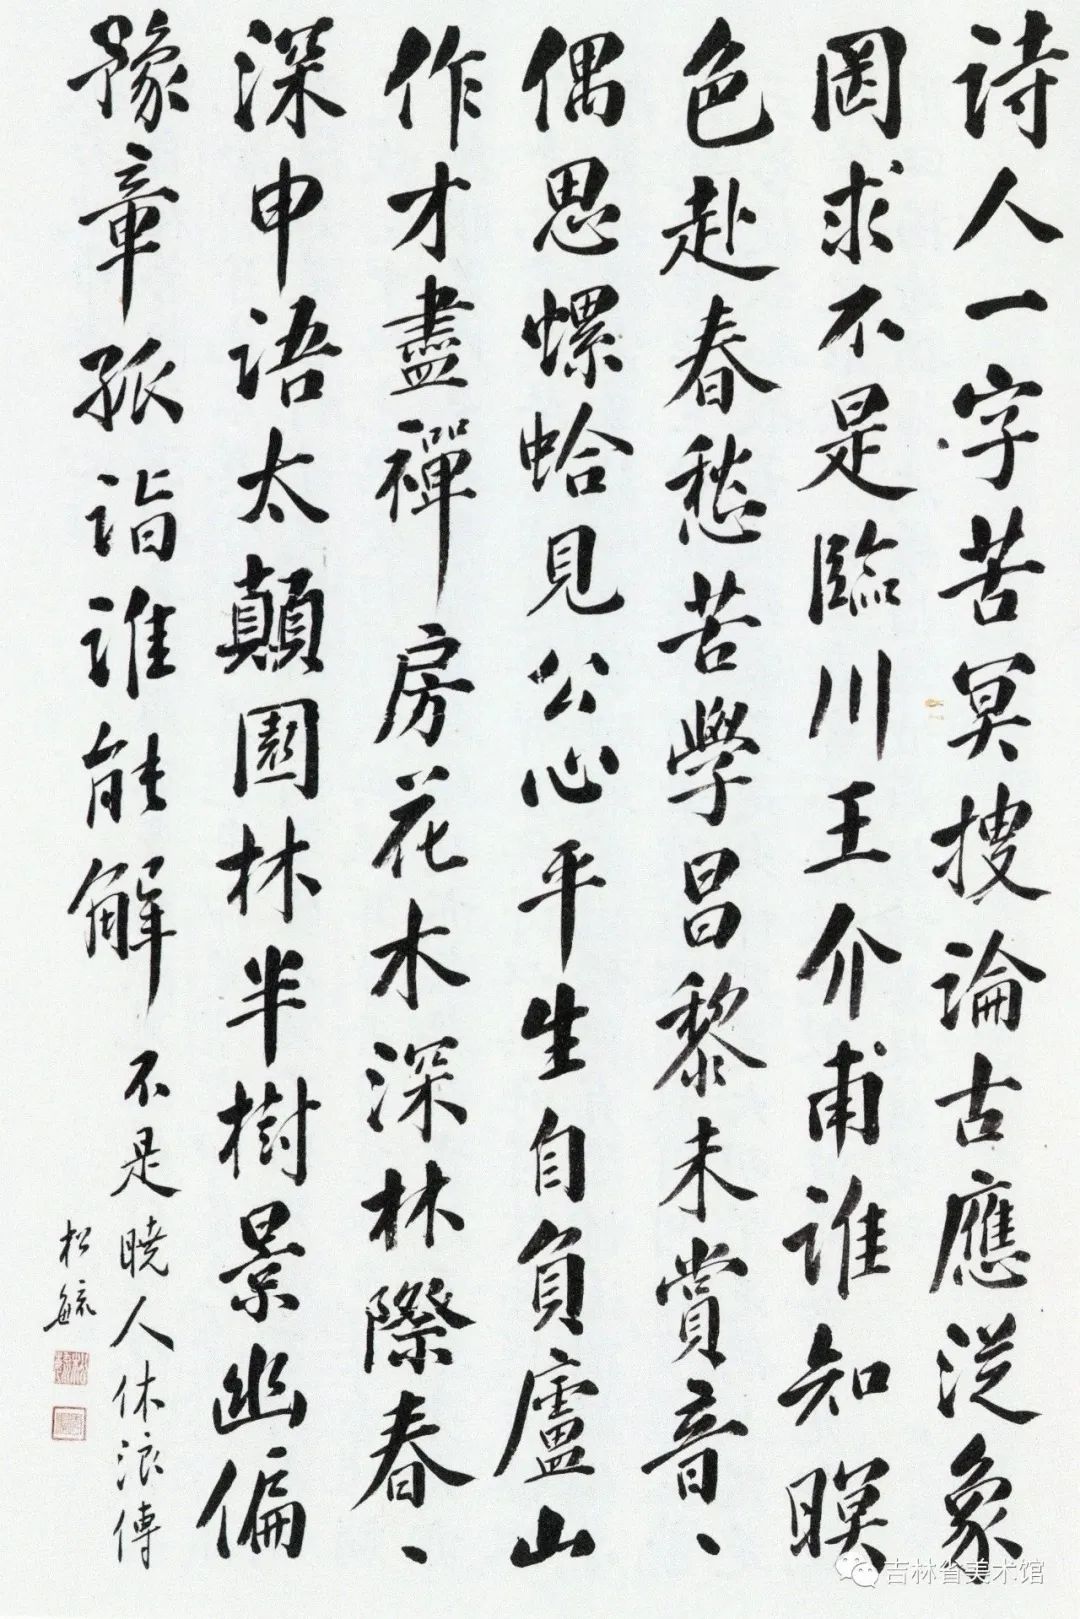 詩人一字苦冥搜論古應從象
罔求不是臨川王介甫誰知暝
色赴春愁苦學昌黎未賞音、
偶思螺蛤見公心平生自負廬山
作才盡禪房花木深林際春、
深申語太顛園林半樹景幽偏
豫章孤詣誰能解 不是曉人休浪傳
松毓
吉林省美术馆